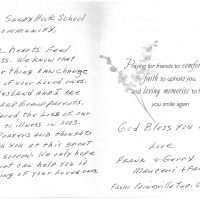 Sandy Hook School
Community,
r hearts feel
oss. We know that
r thing can change
of your loved ones.
usband and I are
and Grandparents.
ered the loss of our
to illness in 2003.
prayers and thoughts
you at this great
sorrow. We only hope
at can help you in
ing of your loved ones.
Praying for friends to comfort
faith to uphold you,
and loving memories to h
you smile again
God Bless You
Love
Frank & Gerry
Mauceri & Fam
From Painesville Twp.